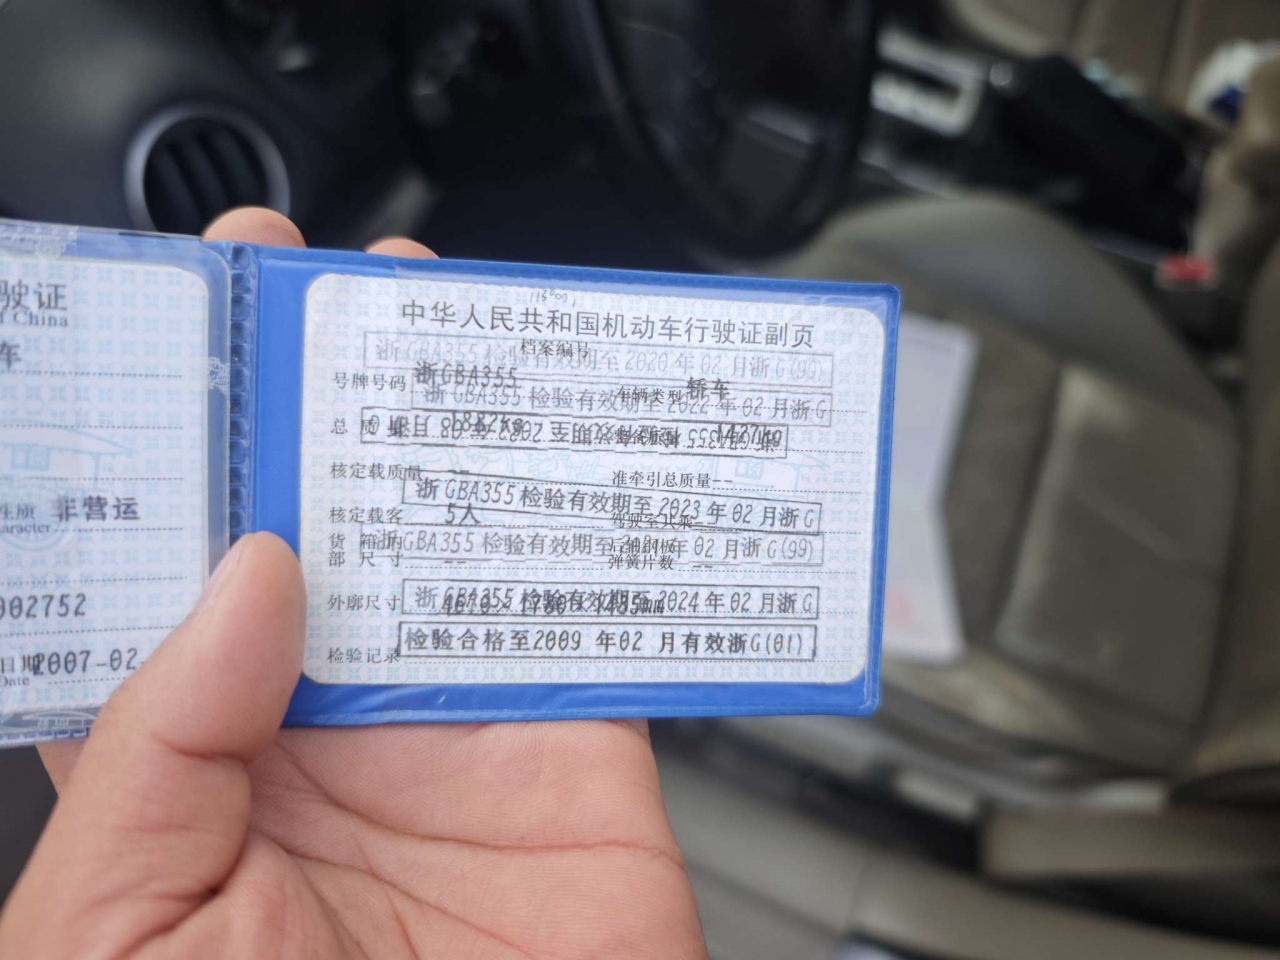 驶证
China
车
性质 非营运
aracter
002752
日期2007-02-
Date
中华人民共和国机动车行驶证副页
档案编号
浙GBA355检验有效期至2020年02月浙G(99)
号牌号码 浙GBA355 车辆类型 轿车
浙GBA355检验有效期至2022年02月浙G
总质量
核定载质量 -- 准牵引总质量 --
浙GBA355检验有效期至2023年02月浙G
核定载客 5人 驾驶室共乘 --
货箱内部尺寸 -- 后轴钢板弹簧片数 --
GBA355检验有效期至 年02月浙G(99)
外廓尺寸
浙GBA355检验有效期至2024年02月浙G
检验合格至2009 年02 月有效浙G(01)
检验记录